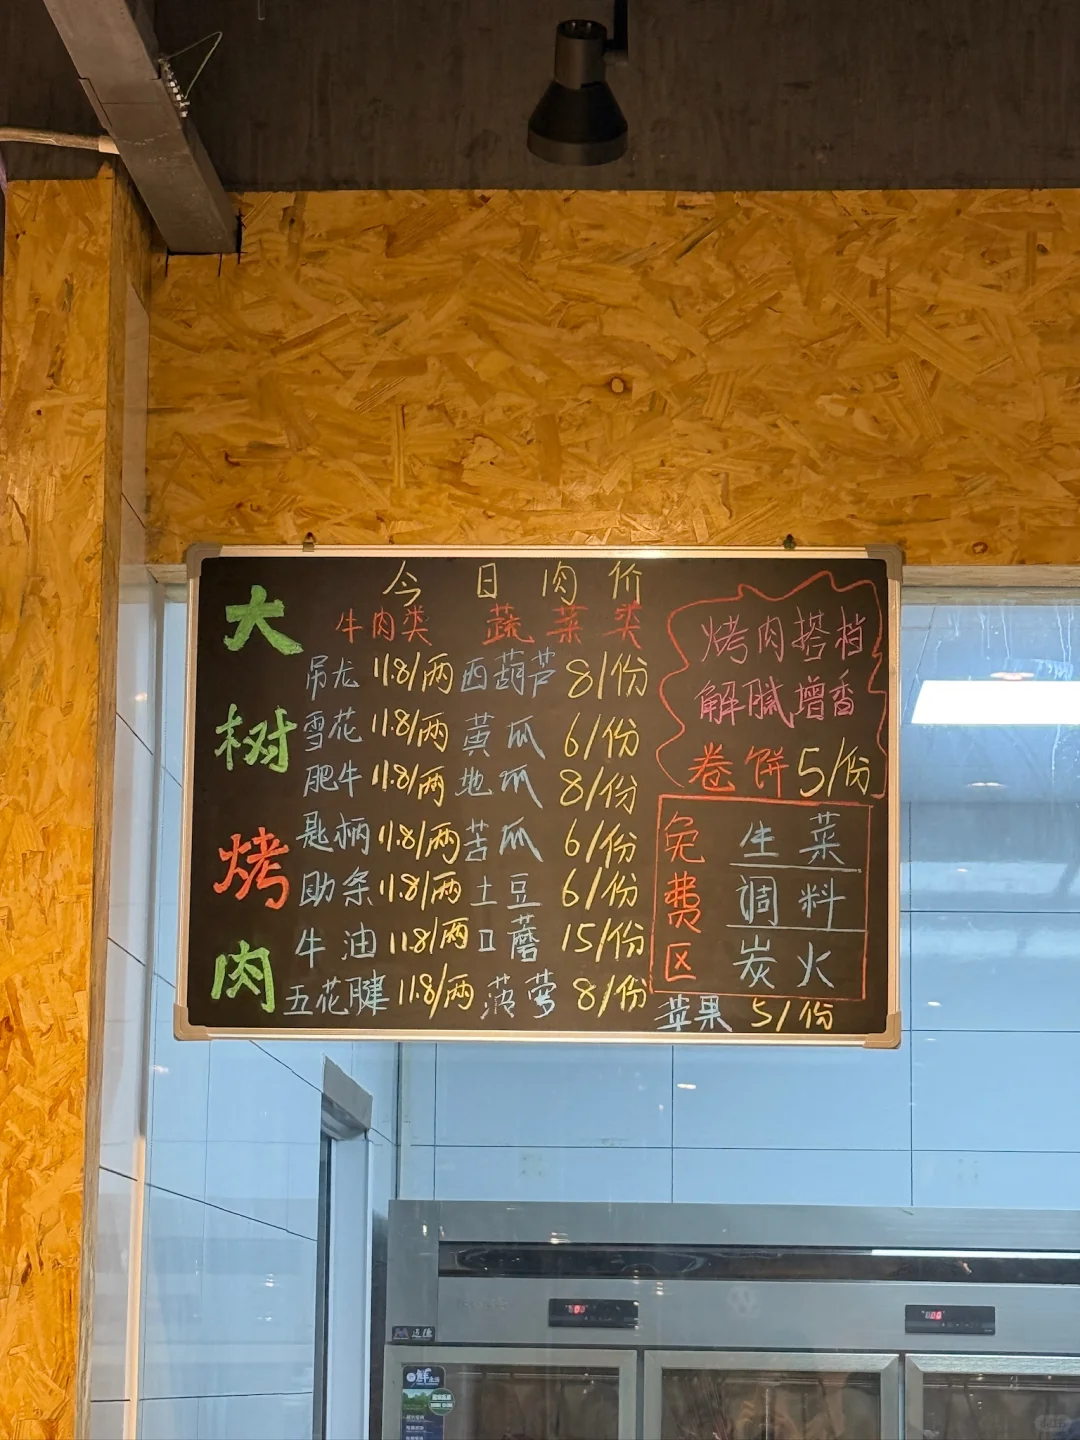 大树烤肉
今日肉价
牛肉类 蔬菜类
吊龙 11.8/两 西葫芦 8/份
雪花 11.8/两 黄瓜 6/份
肥牛 11.8/两 地瓜 8/份
匙柄 11.8/两 苦瓜 6/份
肋条 11.8/两 土豆 6/份
牛油 11.8/两 口蘑 15/份
五花腱 11.8/两 菠萝 8/份
烤肉搭档
解腻增香
卷饼 5/份
免费区
生菜
调料
炭火
苹果 5/份
鲜